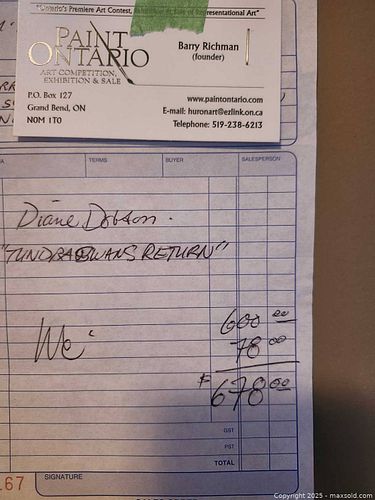 "Ontario's Premiere Art Contest, Exhibition & Sale of Representational Art"
PAINT
ONTARIO
ART COMPETITION,
EXHIBITION & SALE
Barry Richman
(founder)
P.O. Box 127
Grand Bend, ON
N0M 1T0
www.paintontario.com
E-mail: huronart@ezlink.on.ca
Telephone: 519-238-6213
TERMS BUYER SALESPERSON
Diane Dobson.
"TUNDRA SWANS RETURN"
600 00
78 00
$ 678 00
GST
PST
TOTAL
67
SIGNATURE
Copyright 2025 - maxsold.com